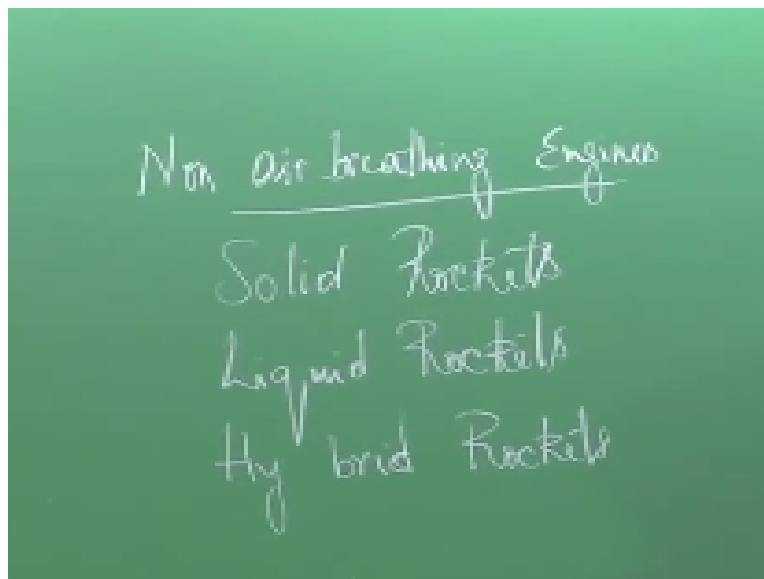 Non air breathing Engines
Solid Rockets
Liquid Rockets
Hy brid Rockets